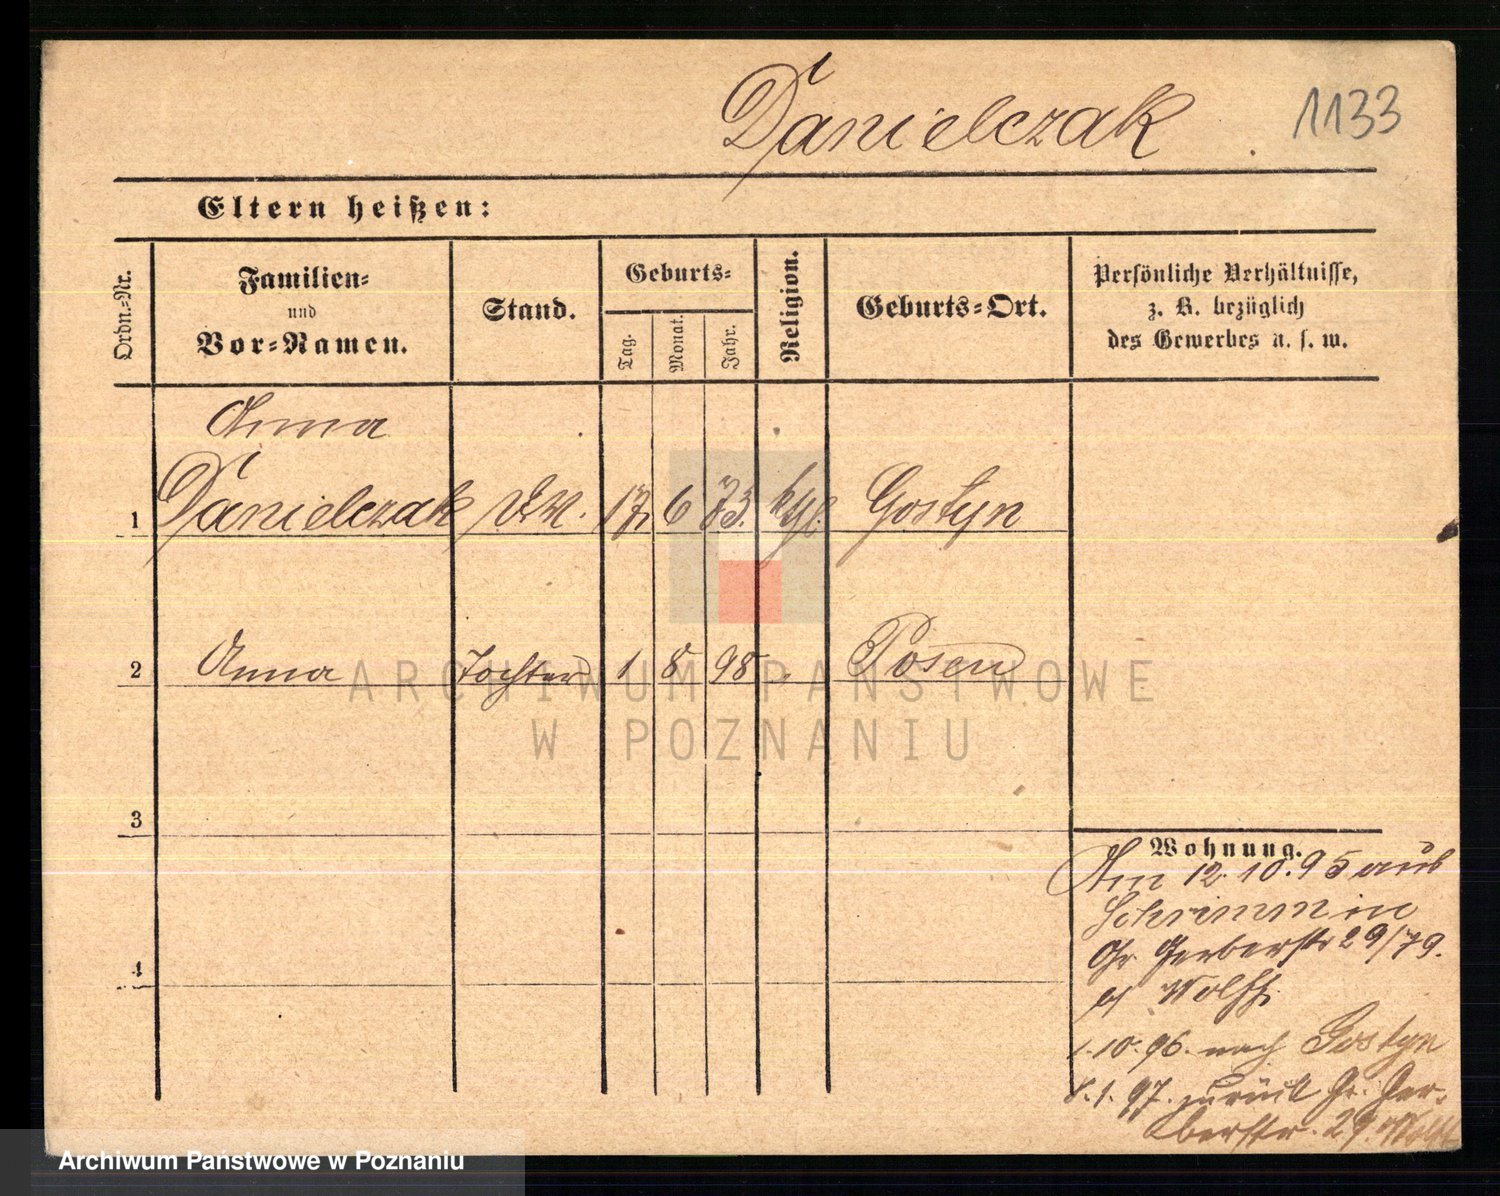 Danielczak
1133
Eltern heißen:
Ordn.-Nr.
Familien-
und
Vor-Namen.
Stand.
Geburts-
Tag.
Monat.
Jahr.
Religion.
Geburts-Ort.
Persönliche Verhältnisse,
z. B. bezüglich
des Gewerbes u. s. w.
Anna
1 Danielczak 17. 6 73. kth. Gostyn
2 Anna Tochter 1 8 98 " Posen
3
4
Wohnung.
Am 12.10.95 aus
Schrimm in
Gr Gerberstr 29/79.
Wolff.
1.10.96. nach Gostyn
8.1.97. zurück Gr. Ger-
berstr. 29. Wolff
ARCHIWUM PAŃSTWOWE
W POZNANIU
Archiwum Państwowe w Poznaniu